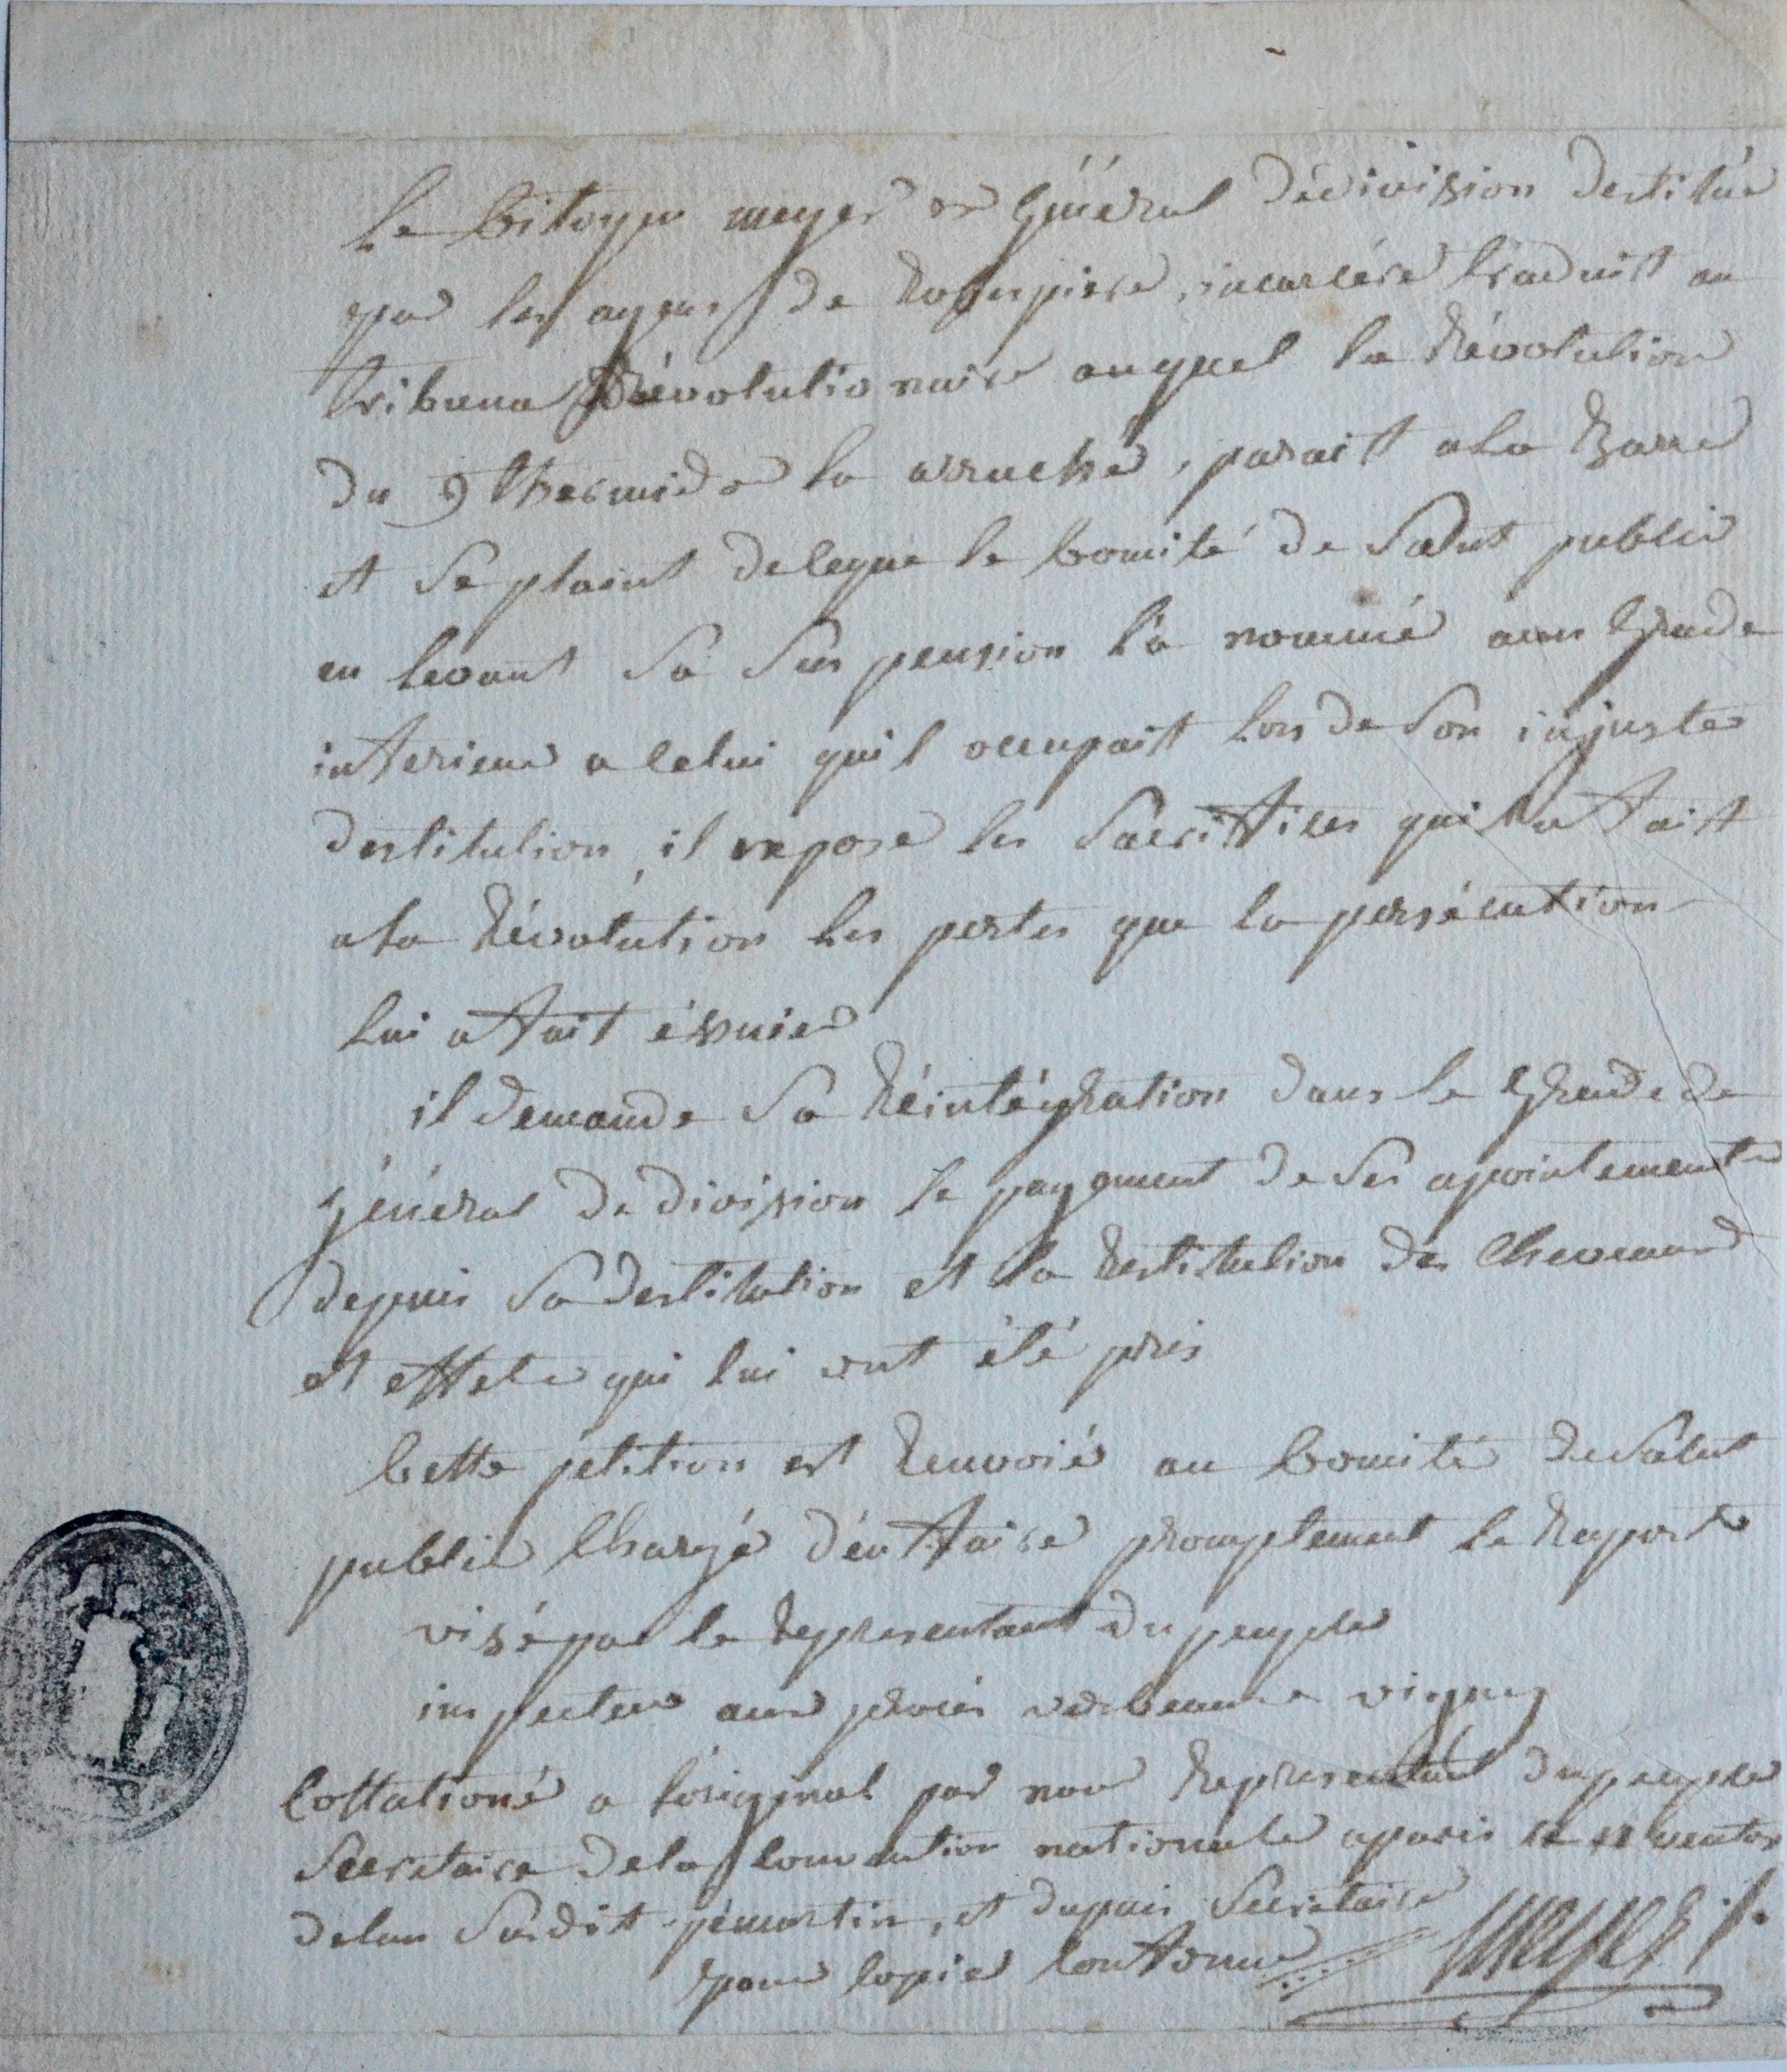 Le Citoyen meyer ex Général dedivision destitué
par les agens de Robespiere, incarcéré traduit au
tribunal Révolutionaire auquel la Révolution
du 9 thermidor la arraché, parait ala Barre
et se plaint deceque le Comité de Salut public
en levant sa suspension l'a nommé aun Grade
inferieur a celui quil occupait lors de son injuste
destitution, il expose les sacrifices quil a fait
ala Révolution les pertes que la persécution
lui a fait éssuier
il demande sa Réintégration dans le Grade de
Général de division le payement de ses apointements
depuis sa destitution et la Restitution des chevaux
et effets qui lui ont été pris
Cette petition est Renvoié au Comité de Salut
public chargé d'en faire promptement le Raport
visé par le Representant du peuple
inspecteur aux procés verbeaux
Collationé a l'original par nous Representans du peuple
Secretaire dela Convention nationale aparis le ventos
delan susdit pémartin, et dupuis Secretaire
pour copie conforme Meyer